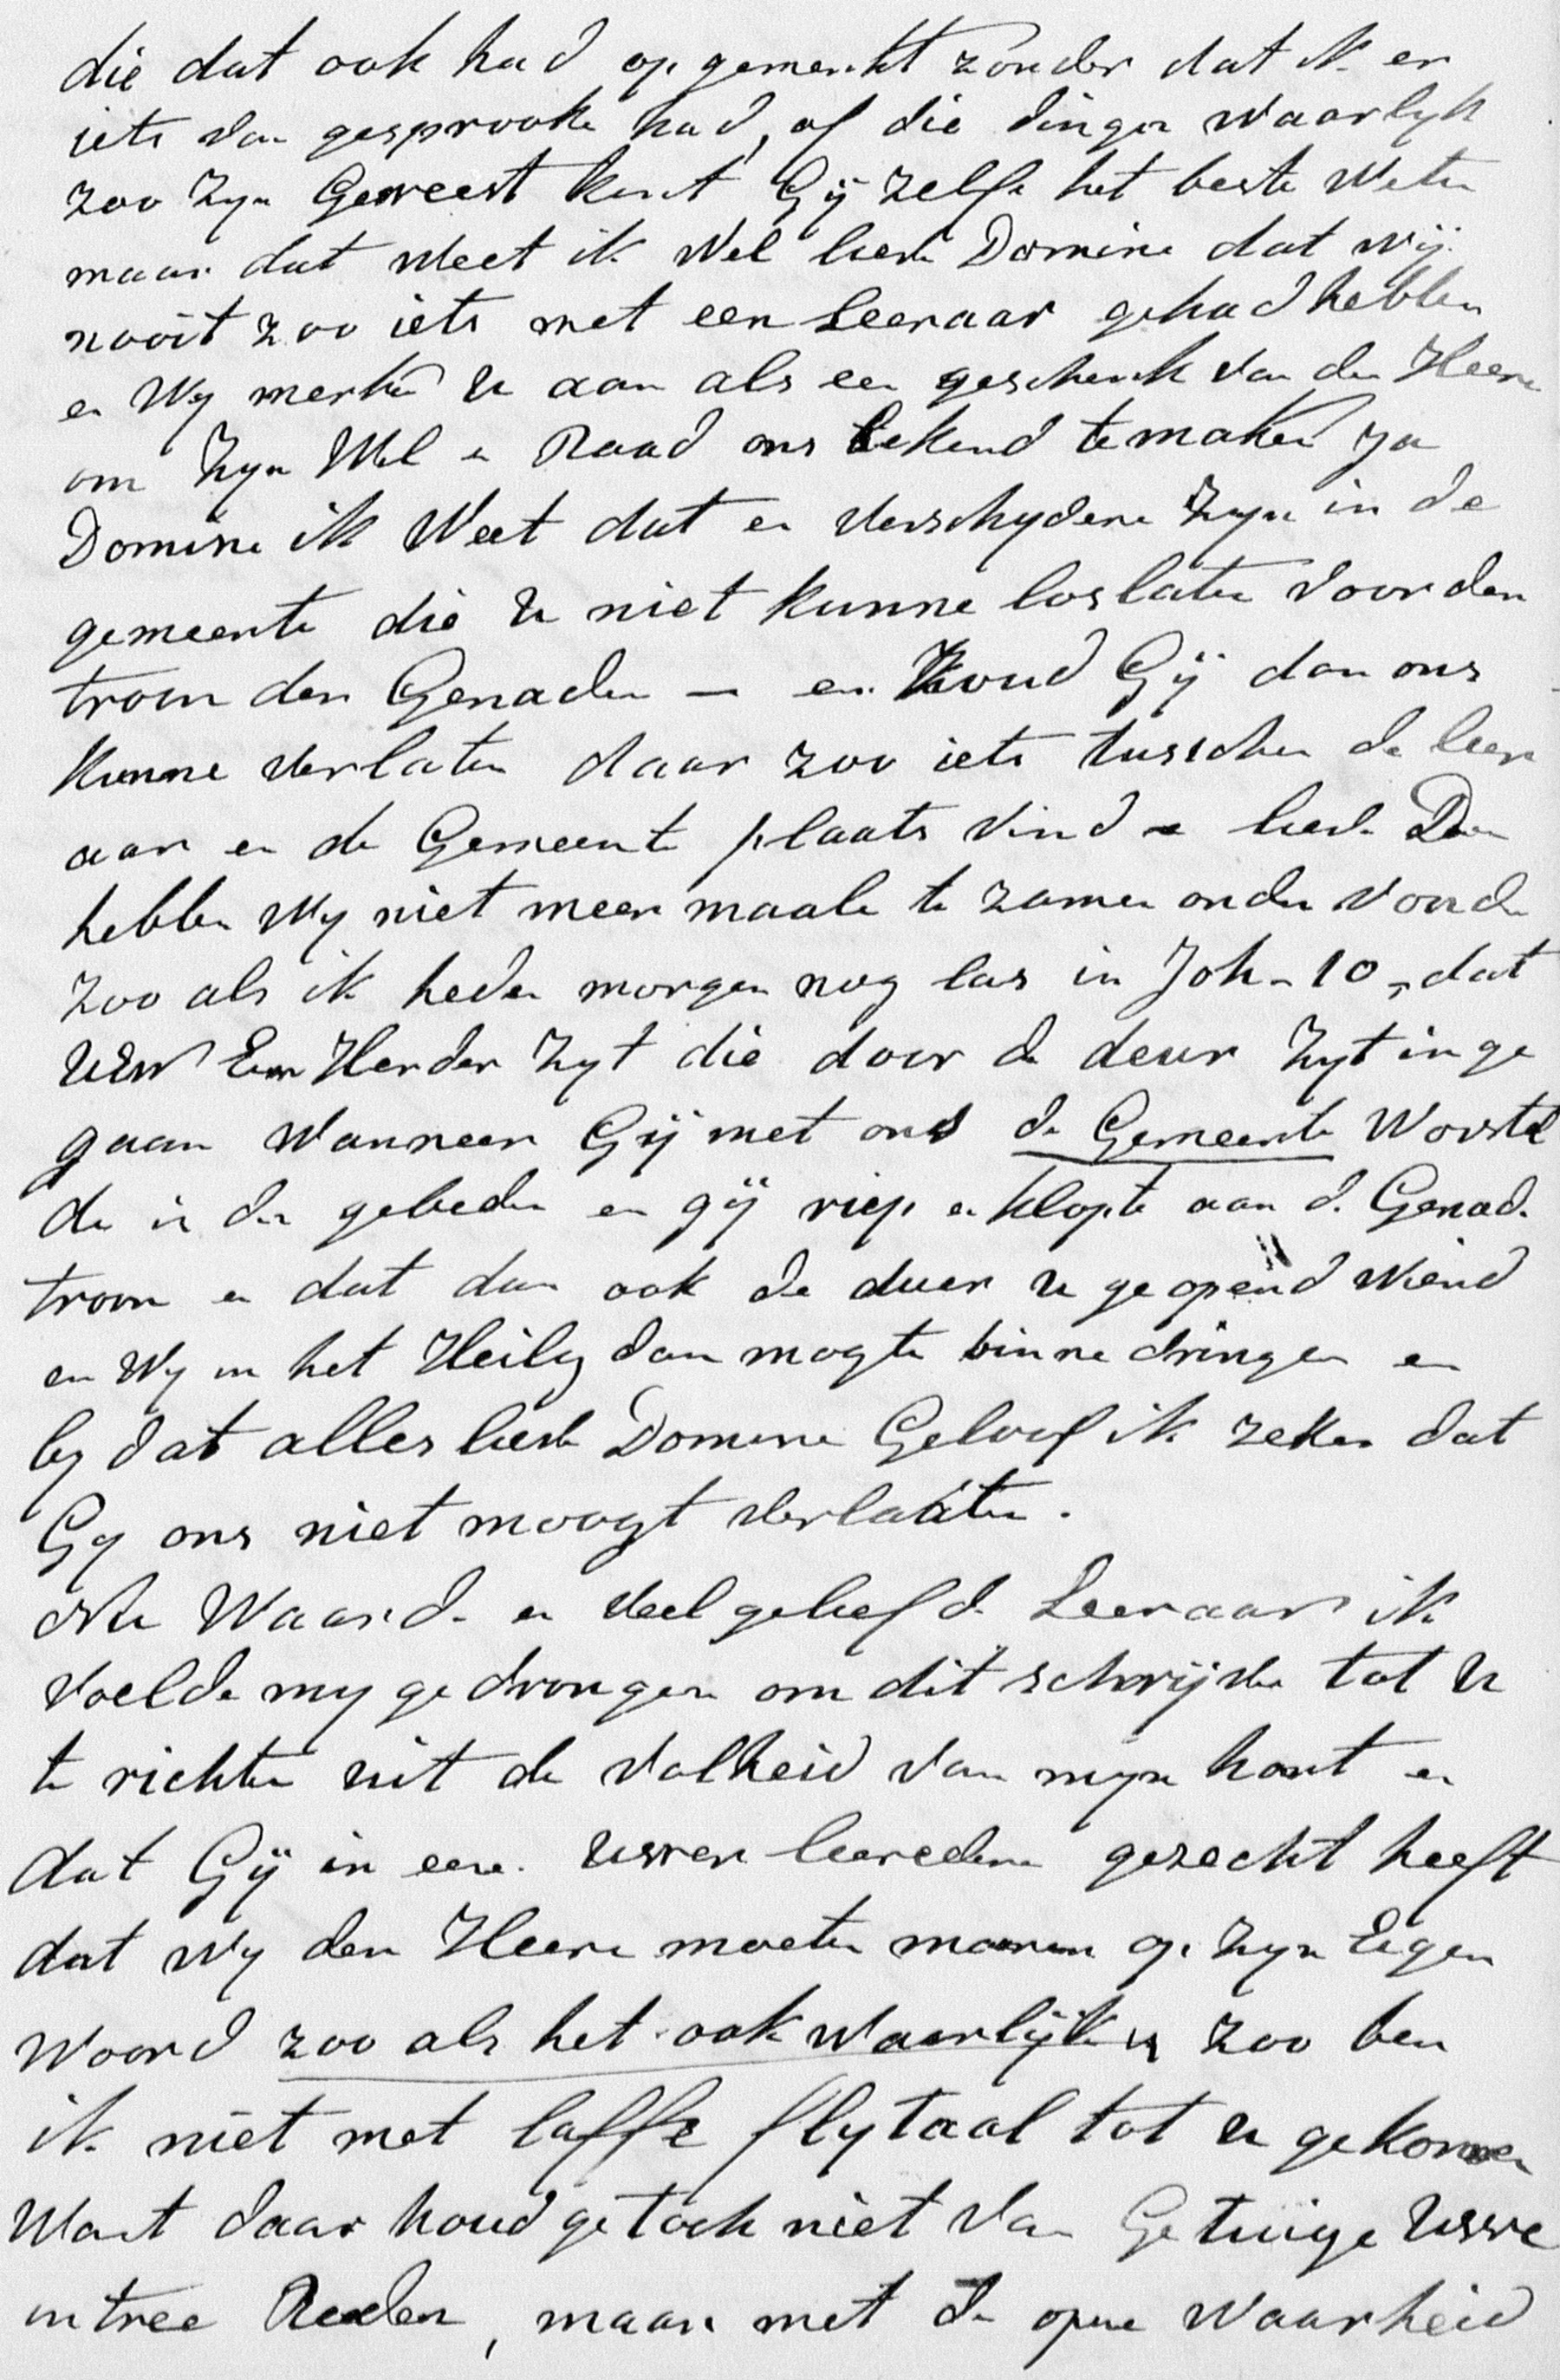 die dat ook had opgemerkt zonder dat ik er
iets van gesprooke had, of die dingen Waarlyk
zoo Zyn Geweest kunt Gij Zelfs het beste Weten
maar dat Weet ik Wel lieve Domine dat wij
nooit zoo iets met een Leeraar gehad hebben
en Wy merken U aan als een geschenk van den Heere
om Zyn Wil en Raad ons bekend te maken ja
Domine ik Weet dat er verschydene Zyn in de
gemeente die U niet kunne loslaten voor den
troon der Genaden – en Zoud Gij dan ons
Kunne verlaten daar zoo iets tusschen de leer
aar en de Gemeente plaats vind – lieve Dom
hebben Wy niet meermaale te zamen onder vonden
Zoo als ik heden morgen nog las in Joh – 10, dat
UEW Een Herder Zyt die door de deur Zyt inge
gaan Wanneer Gij met ons de Gemeente Worstel
de in den gebeden en gij riep en klopte aan d. Genade
troon en dat dan ook de duer u geopend Wierd
en Wy in het Heiligdom mogte binne dringen en
by dat alles lieve Domine Geloof ik zeker dat
Gy ons niet moogt verlaaten.
Waarde en Veel geliefde Leeraar ik
Voelde my gedrongen om dit schrijven tot U
te richten uit de Volheid van myn hart en
dat Gij in eene Uwer leerede gezecht heeft
dat Wy den Heere moeten manen op Zyn Eigen
Woord zoo als het ook Waarlijk is Zoo ben
ik niet met laffe flytaal tot U gekomen
Want daar houd ge toch niet van Getuige Uwe
intree Reden, maar met de opene Waarheid